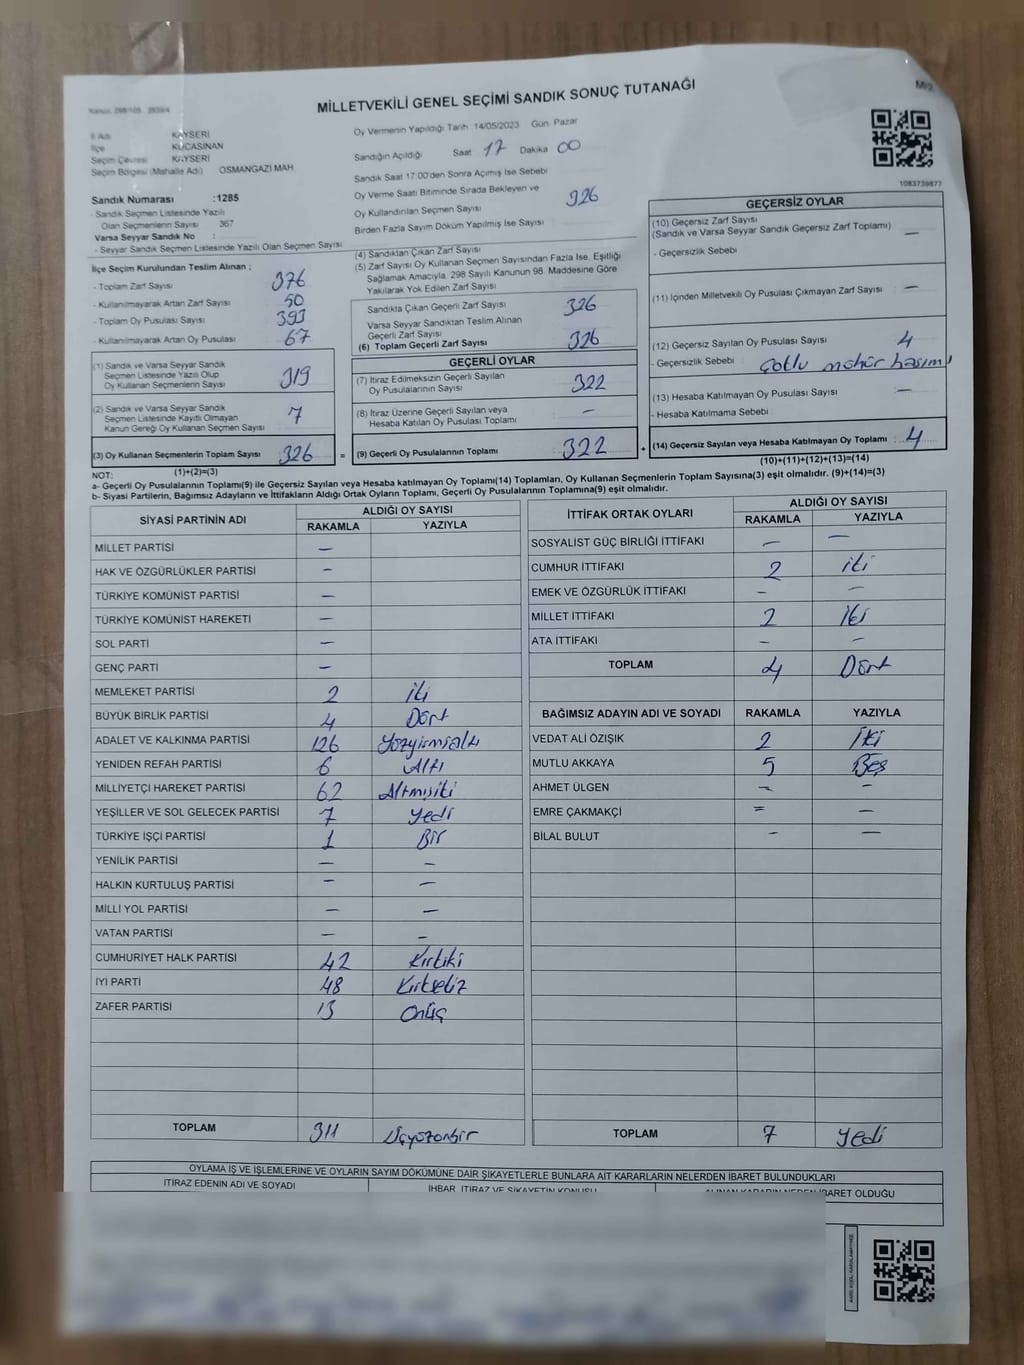 MİLLETVEKİLİ GENEL SEÇİMİ SANDIK SONUÇ TUTANAĞI
İl Adı KAYSERİ
İlçe KOCASİNAN
Seçim Çevresi KAYSERİ
Seçim Bölgesi (Mahalle Adı) OSMANGAZİ MAH
Sandık Numarası :1285
- Sandık Seçmen Listesinde Yazılı
Olan Seçmenlerin Sayısı 367
Varsa Seyyar Sandık No :
- Seyyar Sandık Seçmen Listesinde Yazılı Olan Seçmen Sayısı
Oy Vermenin Yapıldığı Tarih 14/05/2023 Gün Pazar
Sandığın Açıldığı Saat 17 Dakika 00
Sandık Saat 17:00'den Sonra Açımış İse Sebebi
Oy Verme Saati Bitiminde Sırada Bekleyen ve
Oy Kullandırılan Seçmen Sayısı 326
Birden Fazla Sayım Döküm Yapılmış İse Sayısı
1083739877
İlçe Seçim Kurulundan Teslim Alınan ;
- Toplam Zarf Sayısı 376
- Kullanılmayarak Artan Zarf Sayısı 50
- Toplam Oy Pusulası Sayısı 393
- Kullanılmayarak Artan Oy Pusulası 67
(1) Sandık ve Varsa Seyyar Sandık
Seçmen Listesinde Yazılı Olup
Oy Kullanan Seçmenlerin Sayısı 319
(2) Sandık ve Varsa Seyyar Sandık
Seçmen Listesinde Kayıtlı Olmayan
Kanun Gereği Oy Kullanan Seçmen Sayısı 7
(3) Oy Kullanan Seçmenlerin Toplam Sayısı 326
(1)+(2)=(3)
(4) Sandıktan Çıkan Zarf Sayısı
(5) Zarf Sayısı Oy Kullanan Seçmen Sayısından Fazla İse, Eşitliği
Sağlamak Amacıyla, 298 Sayılı Kanunun 98. Maddesine Göre
Yakılarak Yok Edilen Zarf Sayısı
Sandıkta Çıkan Geçerli Zarf Sayısı 326
Varsa Seyyar Sandıktan Teslim Alınan
Geçerli Zarf Sayısı
(6) Toplam Geçerli Zarf Sayısı 326
GEÇERLİ OYLAR
(7) İtiraz Edilmeksizin Geçerli Sayılan
Oy Pusulalarının Sayısı 322
(8) İtiraz Üzerine Geçerli Sayılan veya
Hesaba Katılan Oy Pusulası Toplamı –
= (9) Geçerli Oy Pusulalarının Toplamı 322 +
GEÇERSİZ OYLAR
(10) Geçersiz Zarf Sayısı
(Sandık ve Varsa Seyyar Sandık Geçersiz Zarf Toplamı) –
- Geçersizlik Sebebi
(11) İçinden Milletvekili Oy Pusulası Çıkmayan Zarf Sayısı –
(12) Geçersiz Sayılan Oy Pusulası Sayısı 4
- Geçersizlik Sebebi Çoklu mühür basımı
(13) Hesaba Katılmayan Oy Pusulası Sayısı –
- Hesaba Katılmama Sebebi
(14) Geçersiz Sayılan veya Hesaba Katılmayan Oy Toplamı 4
(10)+(11)+(12)+(13)=(14)
NOT:
a- Geçerli Oy Pusulalarının Toplamı(9) ile Geçersiz Sayılan veya Hesaba katılmayan Oy Toplamı(14) Toplamları, Oy Kullanan Seçmenlerin Toplam Sayısına(3) eşit olmalıdır. (9)+(14)=(3)
b- Siyasi Partilerin, Bağımsız Adayların ve İttifakların Aldığı Ortak Oyların Toplamı, Geçerli Oy Pusulalarının Toplamına(9) eşit olmalıdır.
SİYASİ PARTİNİN ADI ALDIĞI OY SAYISI
RAKAMLA YAZIYLA
MİLLET PARTİSİ –
HAK VE ÖZGÜRLÜKLER PARTİSİ –
TÜRKİYE KOMÜNİST PARTİSİ –
TÜRKİYE KOMÜNİST HAREKETİ –
SOL PARTİ –
GENÇ PARTİ –
MEMLEKET PARTİSİ 2 iki
BÜYÜK BİRLİK PARTİSİ 4 Dört
ADALET VE KALKINMA PARTİSİ 126 Yüzyirmialtı
YENİDEN REFAH PARTİSİ 6 Altı
MİLLİYETÇİ HAREKET PARTİSİ 62 Altmışiki
YEŞİLLER VE SOL GELECEK PARTİSİ 7 Yedi
TÜRKİYE İŞÇİ PARTİSİ 1 Bir
YENİLİK PARTİSİ – –
HALKIN KURTULUŞ PARTİSİ – –
MİLLİ YOL PARTİSİ – –
VATAN PARTİSİ – –
CUMHURİYET HALK PARTİSİ 42 Kırkiki
İYİ PARTİ 48 Kırksekiz
ZAFER PARTİSİ 13 Onüç
TOPLAM 311 Üçyüzonbir
İTTİFAK ORTAK OYLARI ALDIĞI OY SAYISI
RAKAMLA YAZIYLA
SOSYALİST GÜÇ BİRLİĞİ İTTİFAKI – –
CUMHUR İTTİFAKI 2 iki
EMEK VE ÖZGÜRLÜK İTTİFAKI – –
MİLLET İTTİFAKI 2 İki
ATA İTTİFAKI – –
TOPLAM 4 Dört
BAĞIMSIZ ADAYIN ADI VE SOYADI RAKAMLA YAZIYLA
VEDAT ALİ ÖZIŞIK 2 İki
MUTLU AKKAYA 5 Beş
AHMET ÜLGEN – –
EMRE ÇAKMAKÇİ = –
BİLAL BULUT – –
TOPLAM 7 Yedi
OYLAMA İŞ VE İŞLEMLERİNE VE OYLARIN SAYIM DÖKÜMÜNE DAİR ŞİKAYETLERLE BUNLARA AİT KARARLARIN NELERDEN İBARET BULUNDUKLARI
İTİRAZ EDENİN ADI VE SOYADI İHBAR, İTİRAZ VE ŞİKAYETİN KONUSU ALINAN KARARIN NEDEN İBARET OLDUĞU